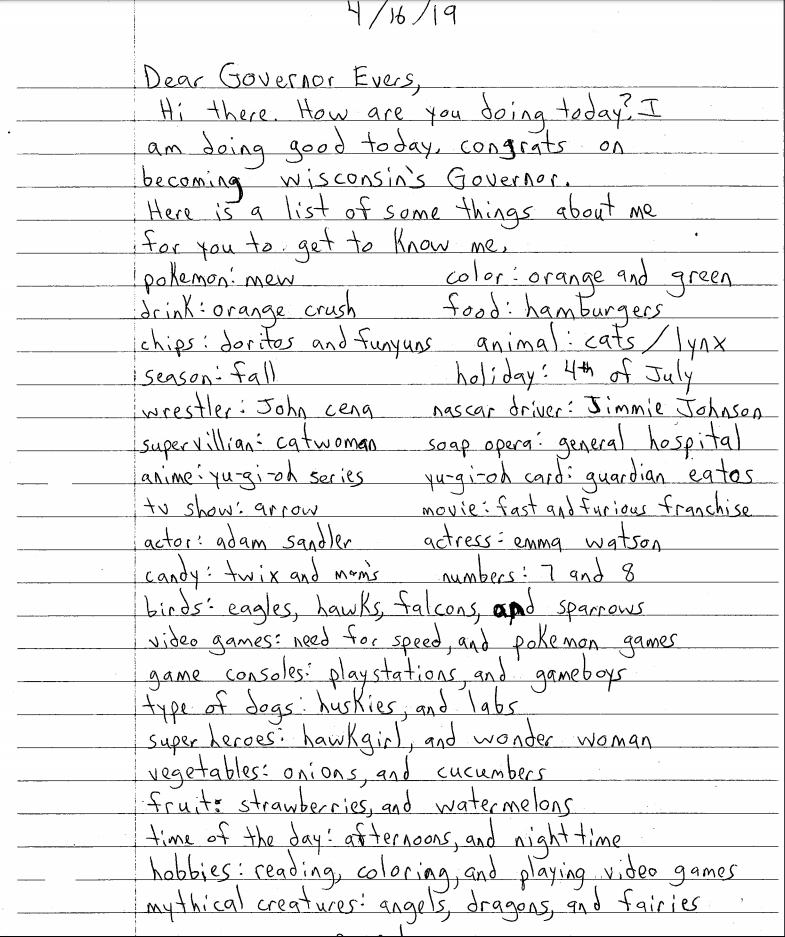 4/16/19
Dear Governor Evers,
Hi there. How are you doing today? I
am doing good today. congrats on
becoming wisconsin's Governor.
Here is a list of some things about me
for you to get to know me.
pokemon: mew color: orange and green
drink: orange crush food: hamburgers
chips: doritos and funyuns animal: cats/lynx
season: fall holiday: 4th of July
wrestler: John cena nascar driver: Jimmie Johnson
supervillian: catwoman soap opera: general hospital
anime: yu-gi-oh series yu-gi-oh card: guardian eatos
tv show: arrow movie: fast and furious franchise
actor: adam sandler actress: emma watson
candy: twix and m&m's numbers: 7 and 8
birds: eagles, hawks, falcons, and sparrows
video games: need for speed, and pokemon games
game consoles: playstations, and gameboys
type of dogs: huskies, and labs
super heroes: hawkgirl, and wonder woman
vegetables: onions, and cucumbers
fruit: strawberries, and watermelons
time of the day: afternoons, and night time
hobbies: reading, coloring, and playing video games
mythical creatures: angels, dragons, and fairies